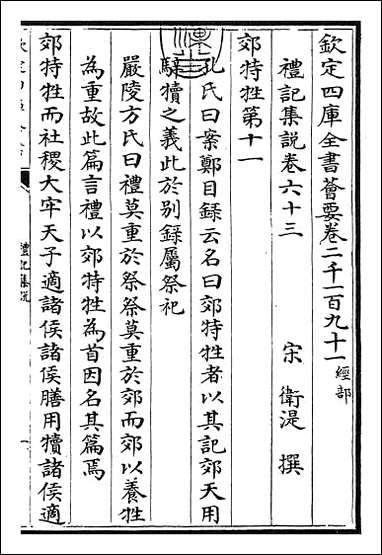 欽定四庫全書薈要卷二千一百九十一經部
禮記集説卷六十三
宋 衛湜 撰
郊特牲第十一
孔氏曰案鄭目録云名曰郊特牲者以其記郊天用
騂犢之義此於别録屬祭祀
嚴陵方氏曰禮莫重於祭祭莫重於郊而郊以養牲
為重故此篇言禮以郊特牲為首因名其篇焉
郊特牲而社稷大牢天子適諸侯諸侯膳用犢諸侯適
禮記集説
一